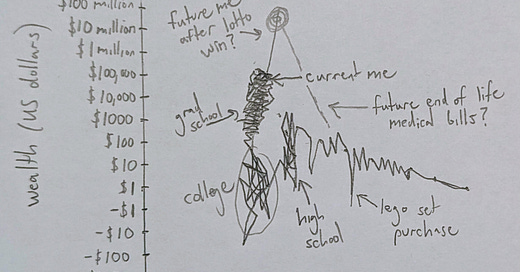 $100 million
$10 million
$1 million
$100,000
$10,000
$1000
$100
$10
$1
-$1
-$10
-$100
wealth (US dollars)
future me
after lotto
win?
current me
grad
school
future end of life
medical bills?
college
high
school
lego set
purchase